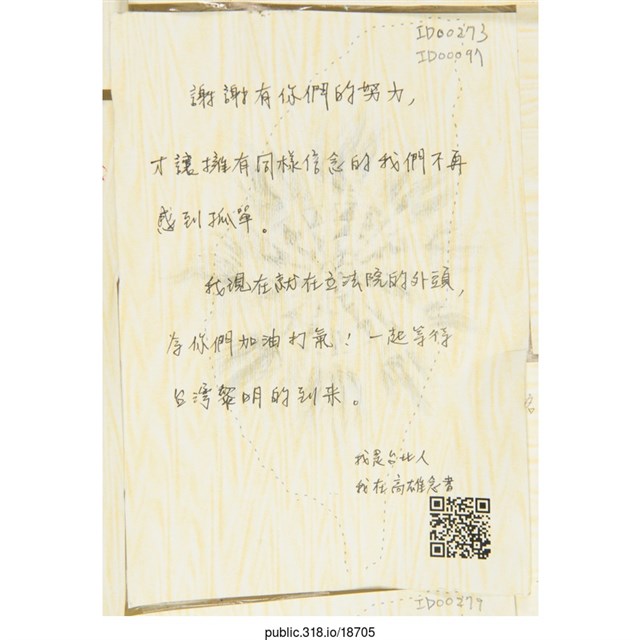 ID00273
ID00097
謝謝有你們的努力,
才讓擁有同樣信念的我們不再
感到孤單。
我現在就在立法院的外頭,
為你們加油打氣！一起等待
台灣黎明的到來。
我是台北人
我在高雄念書
ID00279
public.318.io/18705